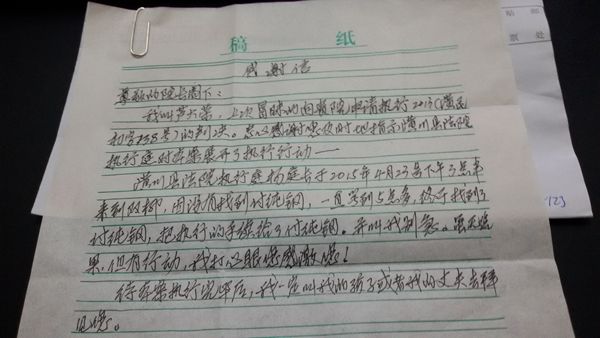 稿 纸
感谢信
尊敬的院长阁下：
我叫 大荣，上次冒昧的向贵院申请执行2013（潢民
初字 38号）的判决。衷心感谢您及时地指示潢川县法院
执行庭对本案展开了执行行动——
潢川县法院执行庭杨庭长于2015年4月23号下午3点多
来到 ，因没有找到付纯钢，一直等到5点多，终于找到了
付纯钢，把执行的手续给了付纯钢。并叫我别急。虽无结
果，但有行动，我打心眼里感激您！
待本案执行完毕后，我一定叫我的孩子或者我的丈夫去拜
见您。
邮
贴
处
票